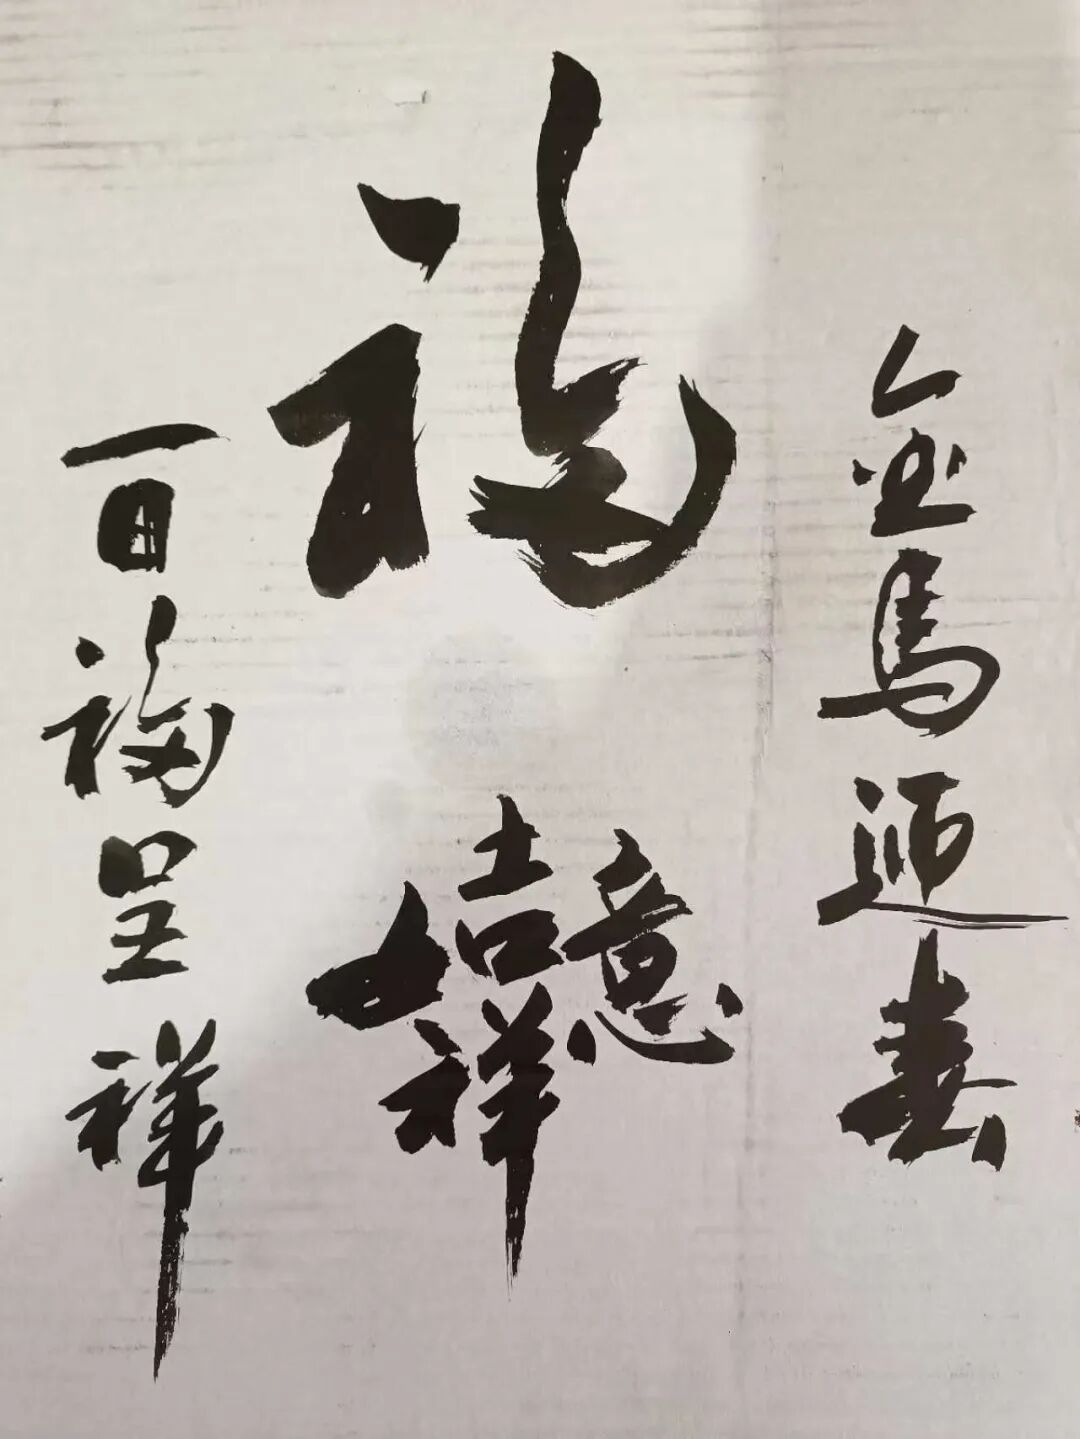 金馬迎春
福
吉祥如意
百福呈祥